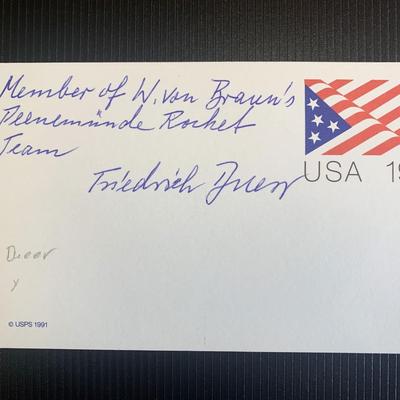 Member of W. von Braun's
Peenemünde Rocket
Team
Friedrich Duerr
USA 19
Dueer
y
© USPS 1991